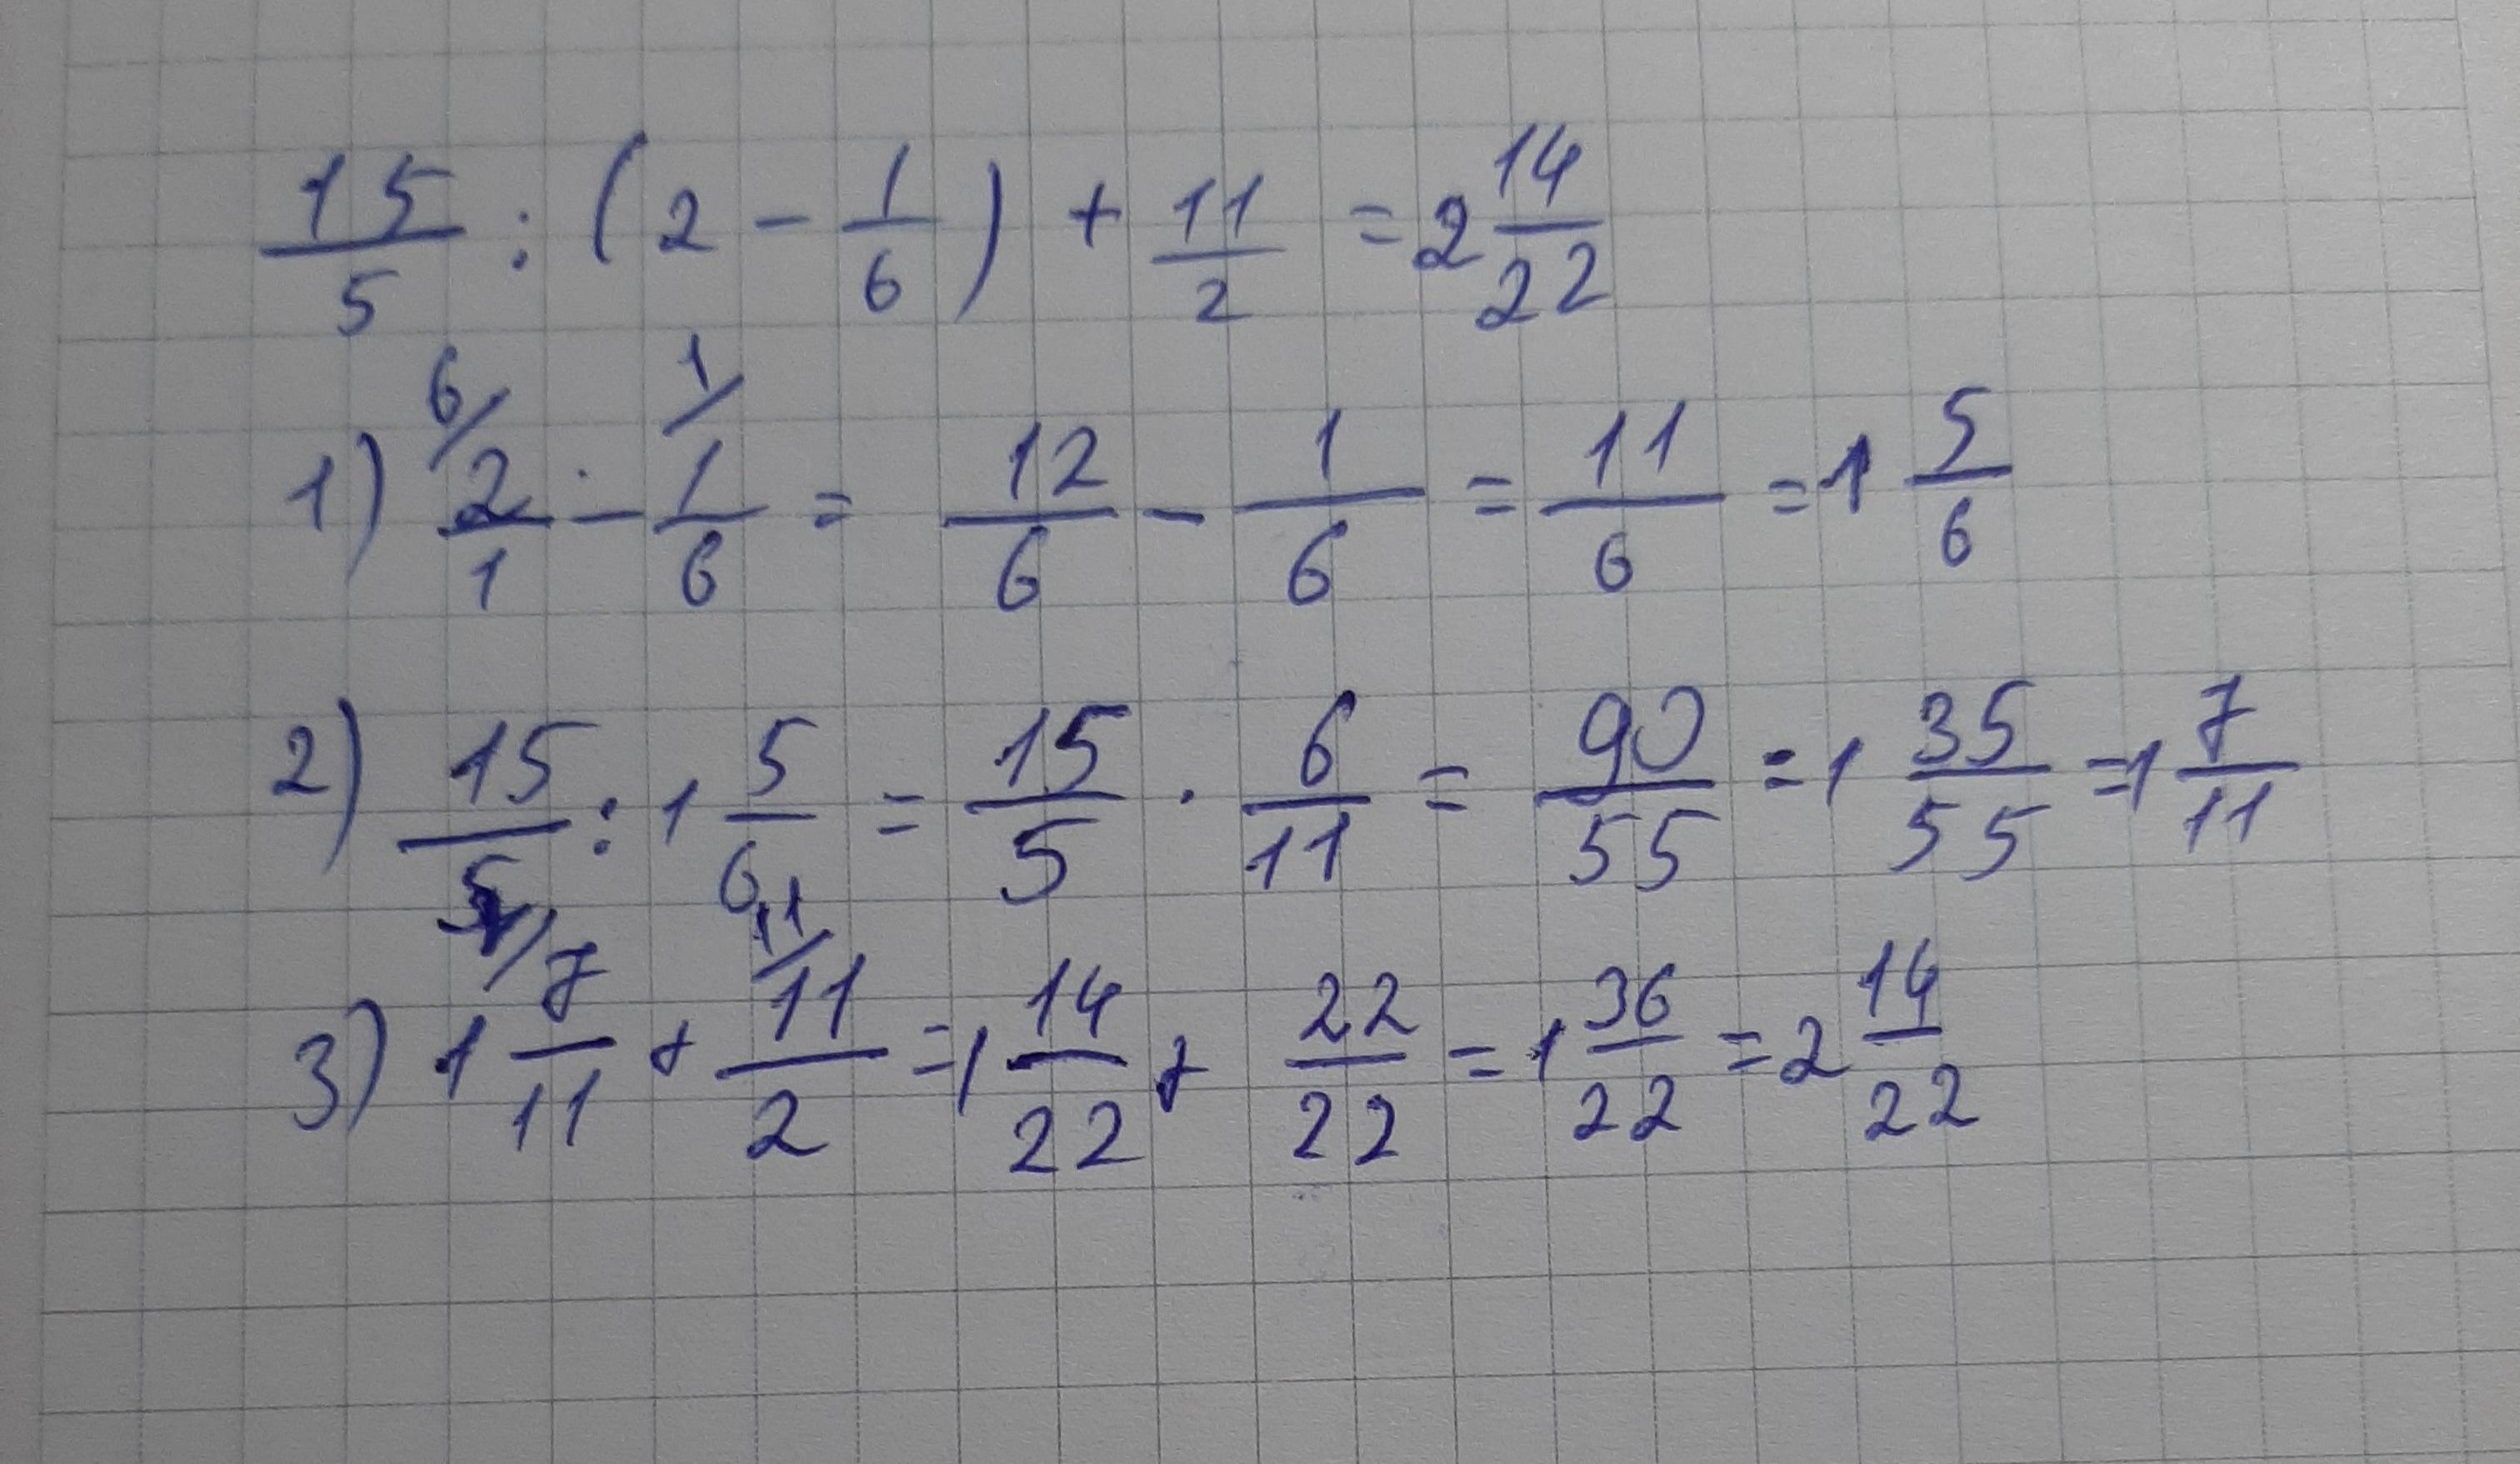 15/5 : (2 - 1/6) + 11/2 = 2 14/22
1) 6/ 2/1 - 1/ 1/6 = 12/6 - 1/6 = 11/6 = 1 5/6
2) 15/5 : 1 5/6 = 15/5 · 6/11 = 90/55 = 1 35/55 = 1 7/11
3) 1 2/ 7/11 + 11/ 11/2 = 1 14/22 + 22/22 = 1 36/22 = 2 14/22